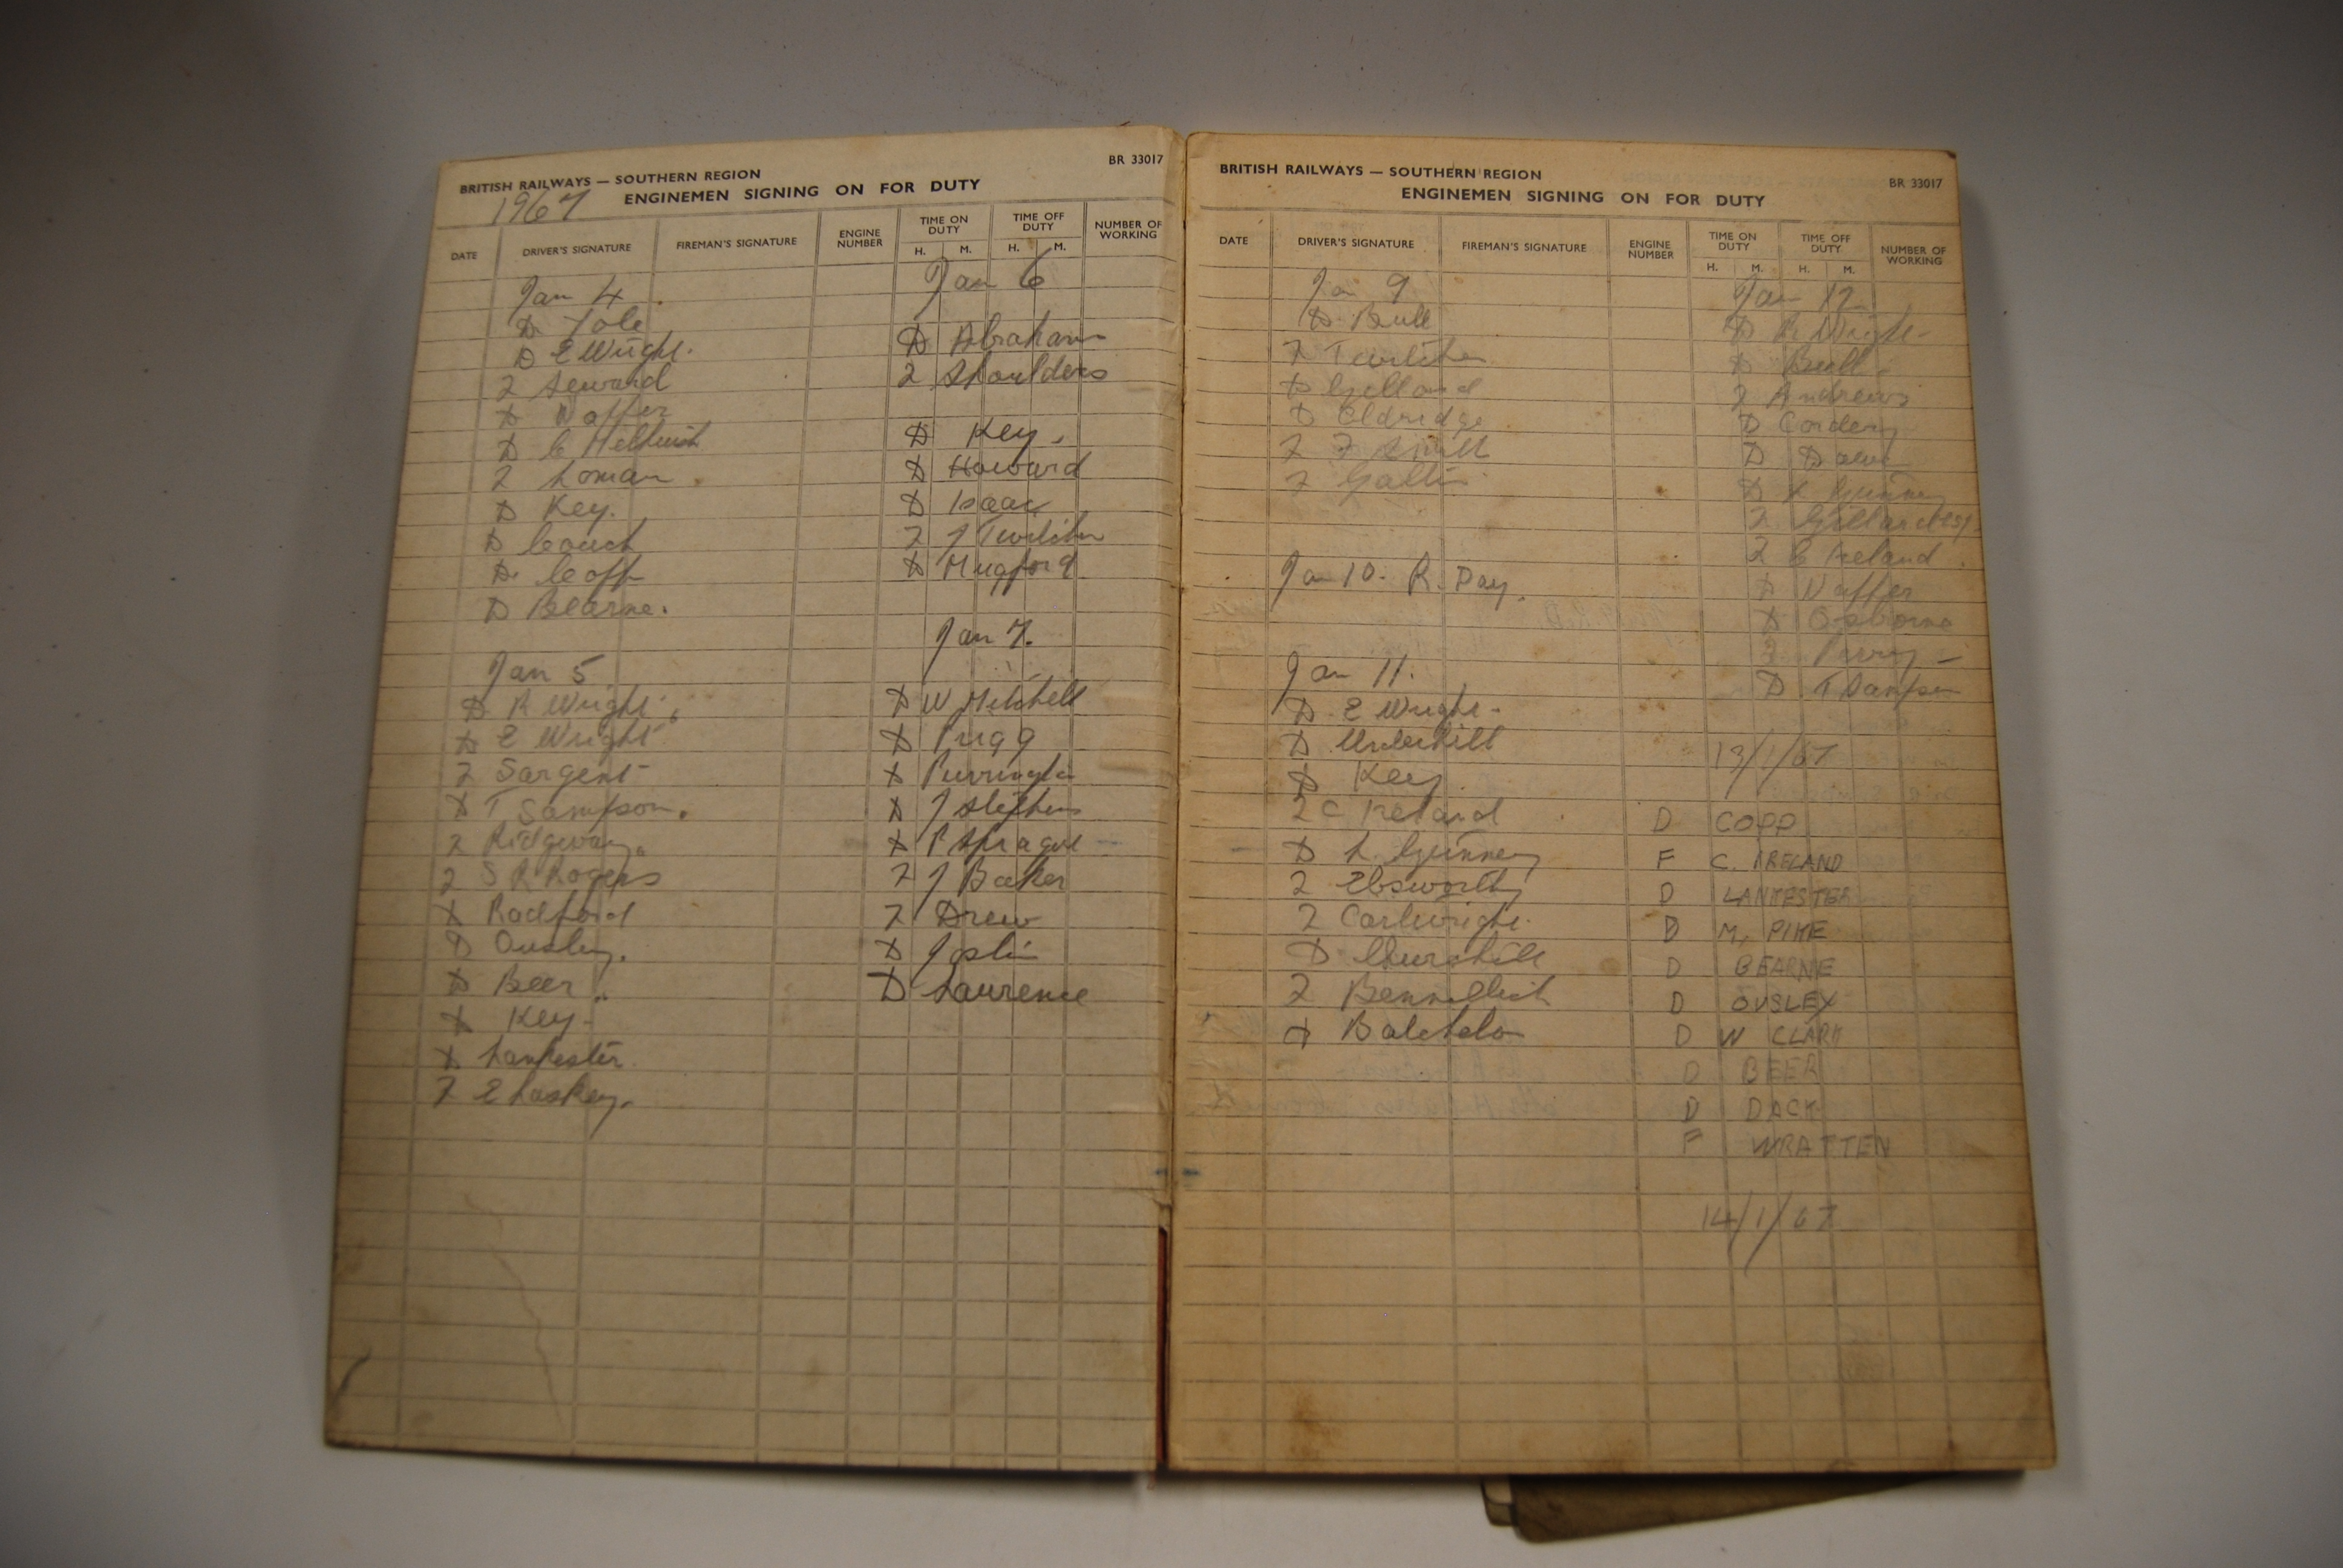 BRITISH RAILWAYS — SOUTHERN REGION
BR 33017
1967
ENGINEMEN SIGNING ON FOR DUTY
DATE
DRIVER'S SIGNATURE
FIREMAN'S SIGNATURE
ENGINE NUMBER
TIME ON DUTY
H. M.
TIME OFF DUTY
H. M.
NUMBER OF WORKING
Jan 4
D Yole
D E Wright.
F Seward
D Naffer
D C Hellwish
F Loman
D Key.
D Couch
D Goff
D Bearne.
Jan 5
D R Wright
D E Wright
F Sargent
D T Sampson.
F Ridgway
F S R Rogers
D Radford
D Ousley.
D Beer
D Key
D Lankester
F E Laskey.
Jan 6
D Abraham
F Shoulders
D Key.
D Howard
D Isaac
F J Twitchin
D Mugford
Jan 7.
D W Mitchell
D Pugg
D Purrington
D J Stephens
D P Sprague
F J Baker
F Drew
D Joslin
D Laurence
BRITISH RAILWAYS — SOUTHERN REGION
BR 33017
ENGINEMEN SIGNING ON FOR DUTY
DATE
DRIVER'S SIGNATURE
FIREMAN'S SIGNATURE
ENGINE NUMBER
TIME ON DUTY
H. M.
TIME OFF DUTY
H. M.
NUMBER OF WORKING
Jan 9
D Bull
F Twitchin
D Gillard
D Eldridge
F F Smith
F Gallin
Jan 10. R. Day.
Jan 11.
D E Wright
D Underhill
D Key
F C Ireland
D L Gunney
F Ebsworthy
F Cartwright
D Churchill
F Bennellick
D Batchelor
Jan 12
D R Wright
D Bull
F Andrews
D Cordery
D
D L Gunney
F Gillard
F C Ireland
D Naffer
D Osborne
F Perry
D T Sampson
13/1/67
D COPP
F C. IRELAND
D LANKESTER
D M, PIKE
D BEARNE
D OUSLEY
D W CLARK
D BEER
D DACK
F WRATTEN
14/1/67